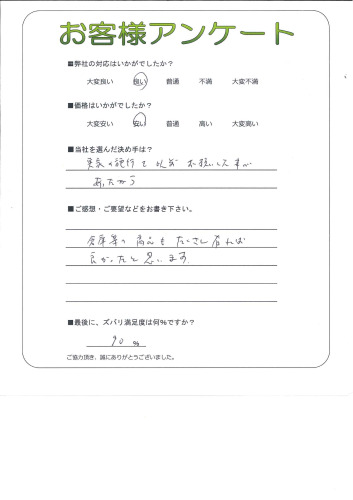 お客様アンケート
■弊社の対応はいかがでしたか？
大変良い 良い 普通 不満 大変不満
■価格はいかがでしたか？
大変安い 安い 普通 高い 大変高い
■当社を選んだ決め手は？
実家の施行で以前お願いした事が
あったから
■ご感想・ご要望などをお書き下さい。
倉庫等の商品もたくさん有れば
良かったと思います
■最後に、ズバリ満足度は何%ですか？
90 %
ご協力頂き、誠にありがとうございました。